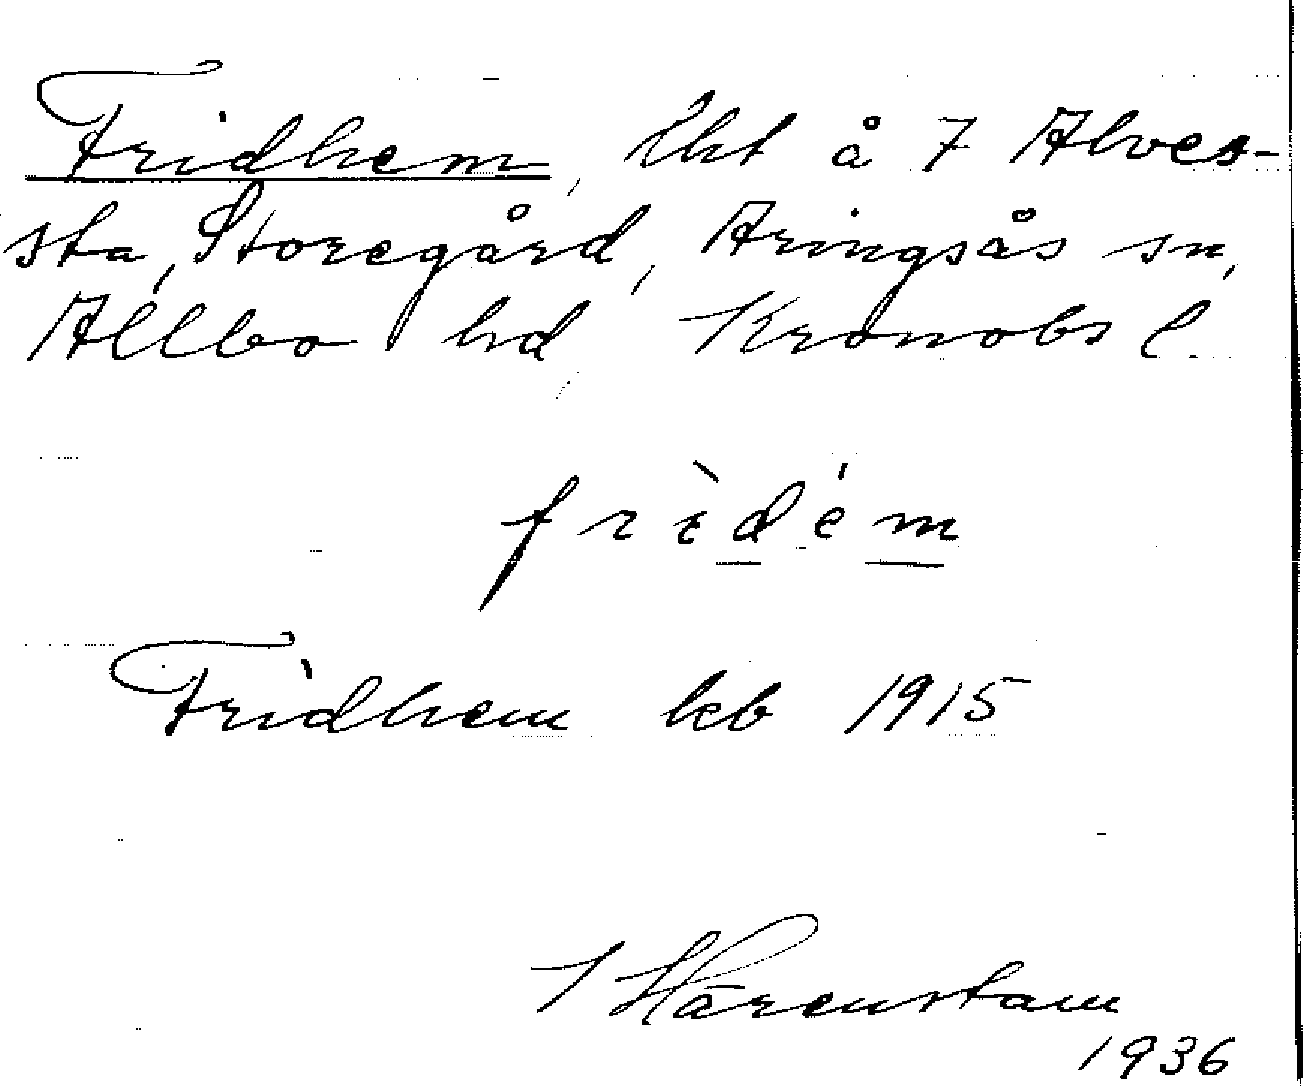 Fridhem, lht å 7 Alves-
sta, Storegård, Aringsås sn,
Allbo hd, Kronobs l.
frìdém
Fridhem kb 1915
I Härenstam
1936